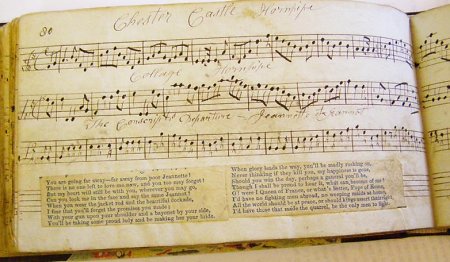 80
Chester Castle Hornpipe
Cottage Hornpipe
The Conscripts Departure – Jeannette & Jeannot
You are going far away—far away from poor Jeannette!
There is no one left to love me now, and you too may forget;
But my heart it will still be with you, wherever you may go,
Can you look me in the face and say the same, Jeannot?
When you wear the jacket red and the beautiful cockade,
I fear that you'll forget the promises you made:
With your gun upon your shoulder and a bayonet by your side,
You'll be taking some proud lady and be making her your bride.
When glory leads the way, you'll be madly rushing on,
Never thinking if they kill you, my happiness is gone,
Should you win the day, perhaps a general you'll be,
Though I shall be proud to hear it, what can become of me?
O! if were I Queen of France, or what's better, Pope of Rome,
I'd have no fighting men abroad, no weeping maids at home,
All the world should be at peace, or should kings assert their right,
I'd have those that made the quarrel, be the only men to fight.